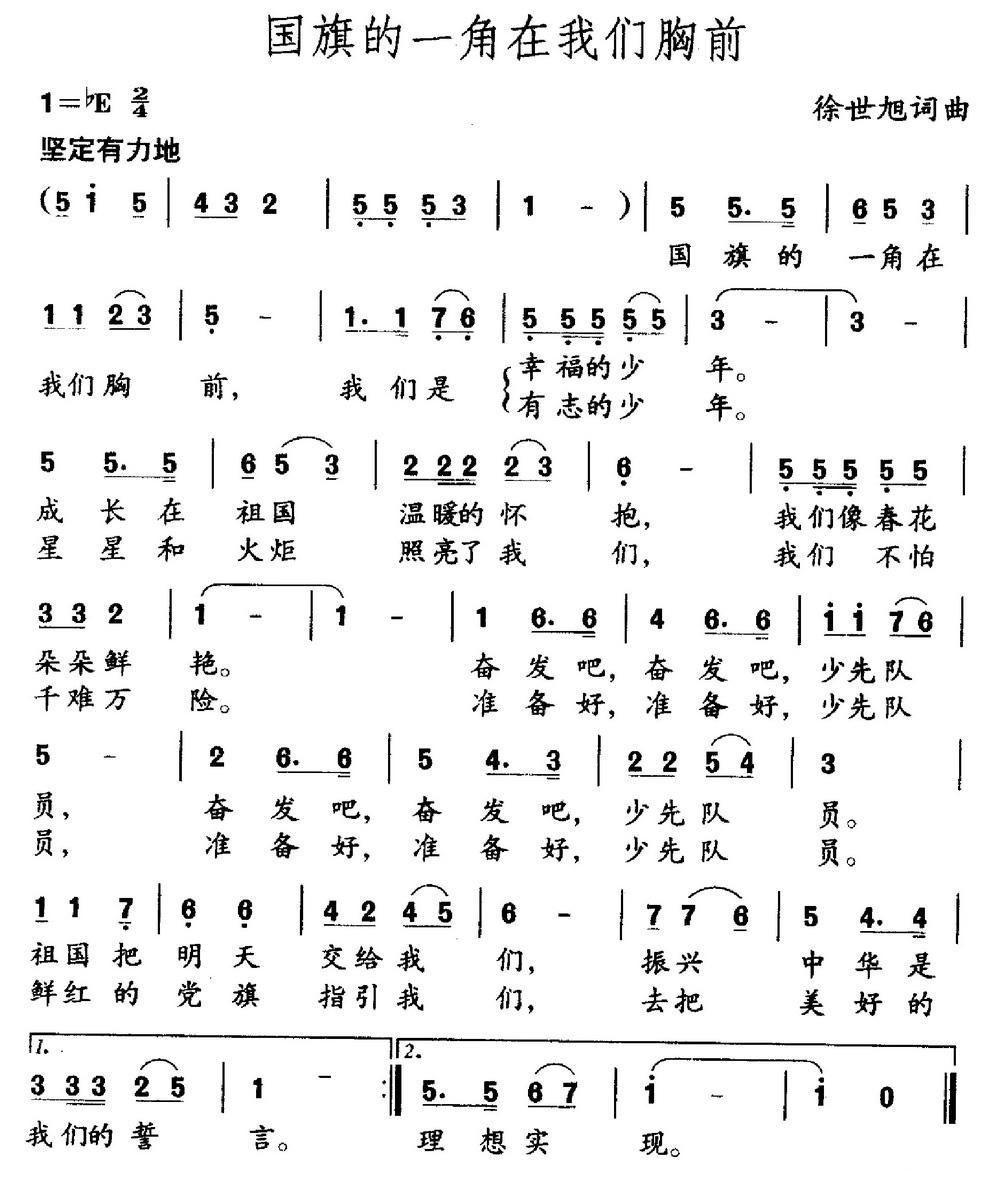 国旗的一角在我们胸前
1=♭E 2/4
徐世旭词曲
坚定有力地
(5 i 5 | 4 3 2 | 5 5 5 3 | 1 - ) | 5 5. 5 | 6 5 3 |
国 旗 的 一角在
1 1 2 3 | 5 - | 1. 1 7 6 | 5 5 5 5 5 | 3 - | 3 - |
我们胸 前, 我 们 是 幸 福的少 年。
有 志的少 年。
5 5. 5 | 6 5 3 | 2 2 2 2 3 | 6 - | 5 5 5 5 5 |
成 长 在 祖国 温暖的 怀 抱, 我们像春花
星 星 和 火炬 照亮了 我 们, 我们 不怕
3 3 2 | 1 - | 1 - | 1 6. 6 | 4 6. 6 | i i 7 6 |
朵朵鲜 艳。 奋 发 吧, 奋 发 吧, 少先队
千难万 险。 准 备 好, 准 备 好, 少先队
5 - | 2 6. 6 | 5 4. 3 | 2 2 5 4 | 3 |
员, 奋 发 吧, 奋 发 吧, 少先队 员。
员, 准 备 好, 准 备 好, 少先队 员。
1 1 7 | 6 6 | 4 2 4 5 | 6 - | 7 7 6 | 5 4. 4 |
祖国把 明 天 交给我 们, 振兴 中 华 是
鲜红的 党 旗 指引我 们, 去把 美 好 的
1. 2.
3 3 3 2 5 | 1 - :| 5. 5 6 7 | i - | i 0 |
我们的 誓 言。 理 想 实 现。